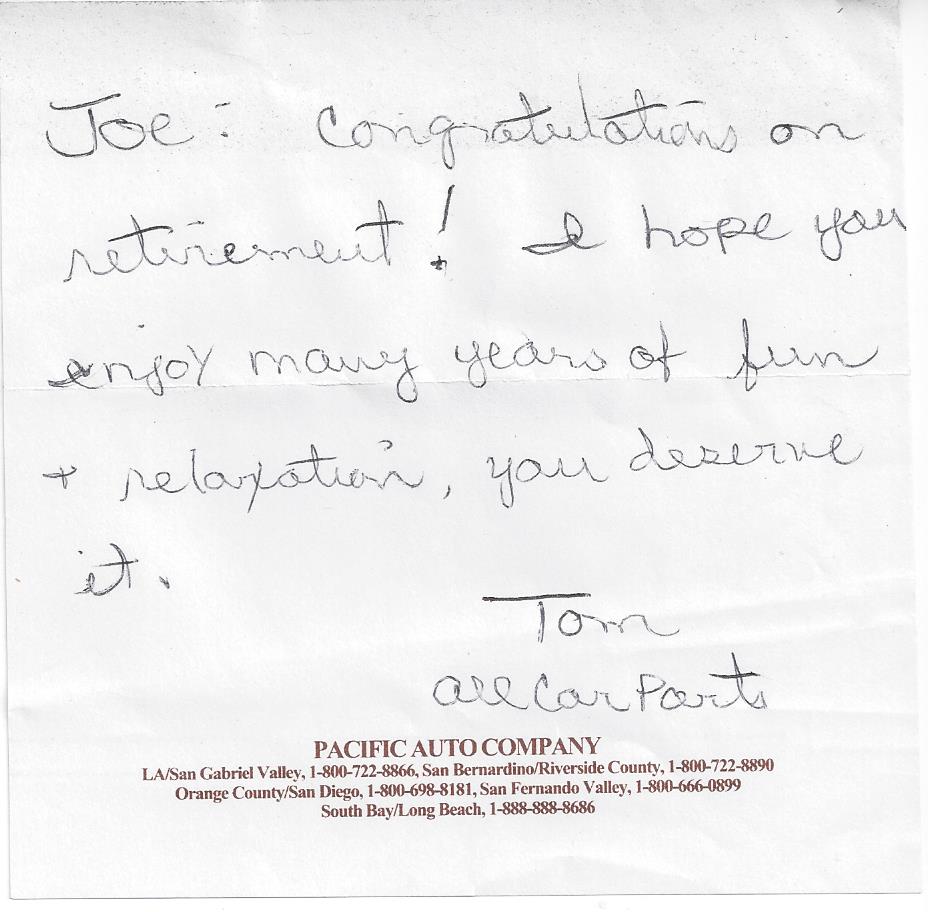 Joe: Congratulations on
retirement! I hope you
enjoy many years of fun
+ relaxation, you deserve
it.
Tom
All Car Parts
PACIFIC AUTO COMPANY
LA/San Gabriel Valley, 1-800-722-8866, San Bernardino/Riverside County, 1-800-722-8890
Orange County/San Diego, 1-800-698-8181, San Fernando Valley, 1-800-666-0899
South Bay/Long Beach, 1-888-888-8686